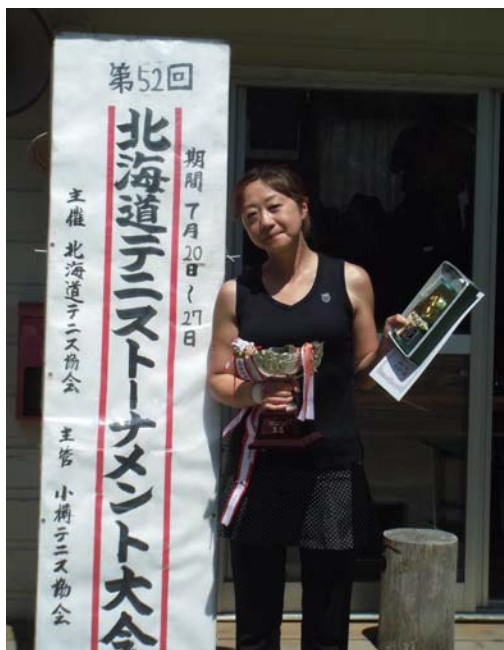 第52回
期間 7月20日~27日
北海道テニストーナメント大会
主催 北海道テニス協会 主管 小樽テニス協会